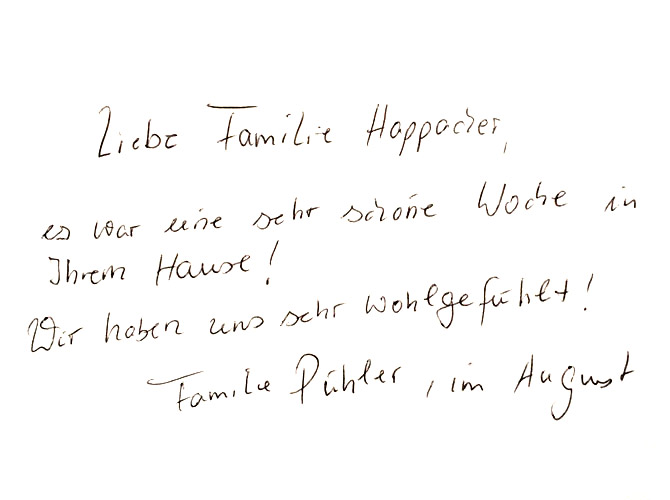 Liebe Familie Happacher,
es war eine sehr schöne Woche in
Ihrem Hause!
Wir haben uns sehr wohlgefühlt!
Familie Pühler, im August